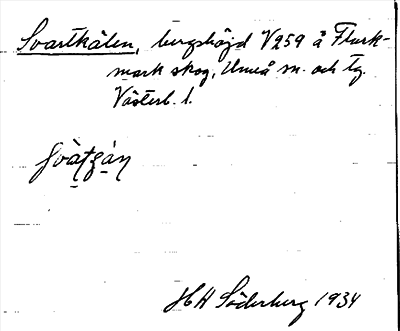 Svartkålen, bergshöjd V259 å Flurk-
mark skog, Umeå sn. och tg.
Västerb. l.
HH Söderberg 1934